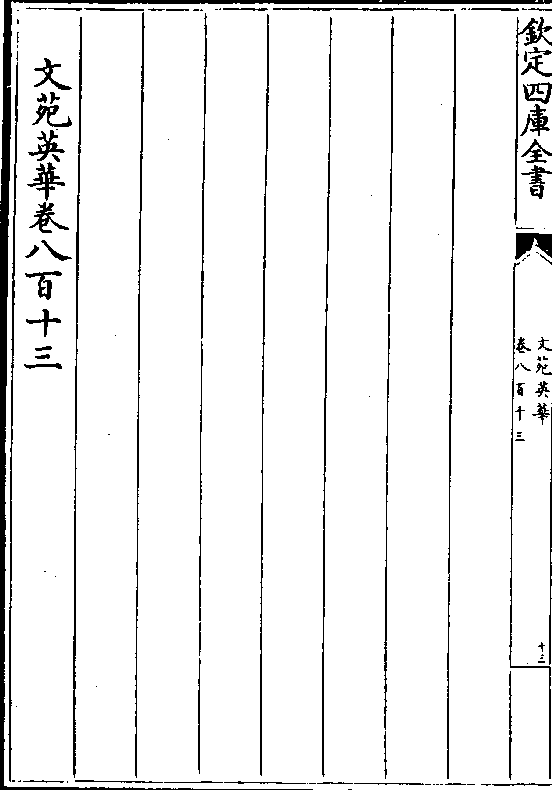 欽定四庫全書
文苑英華
卷八百十三
十三
文苑英華卷八百十三